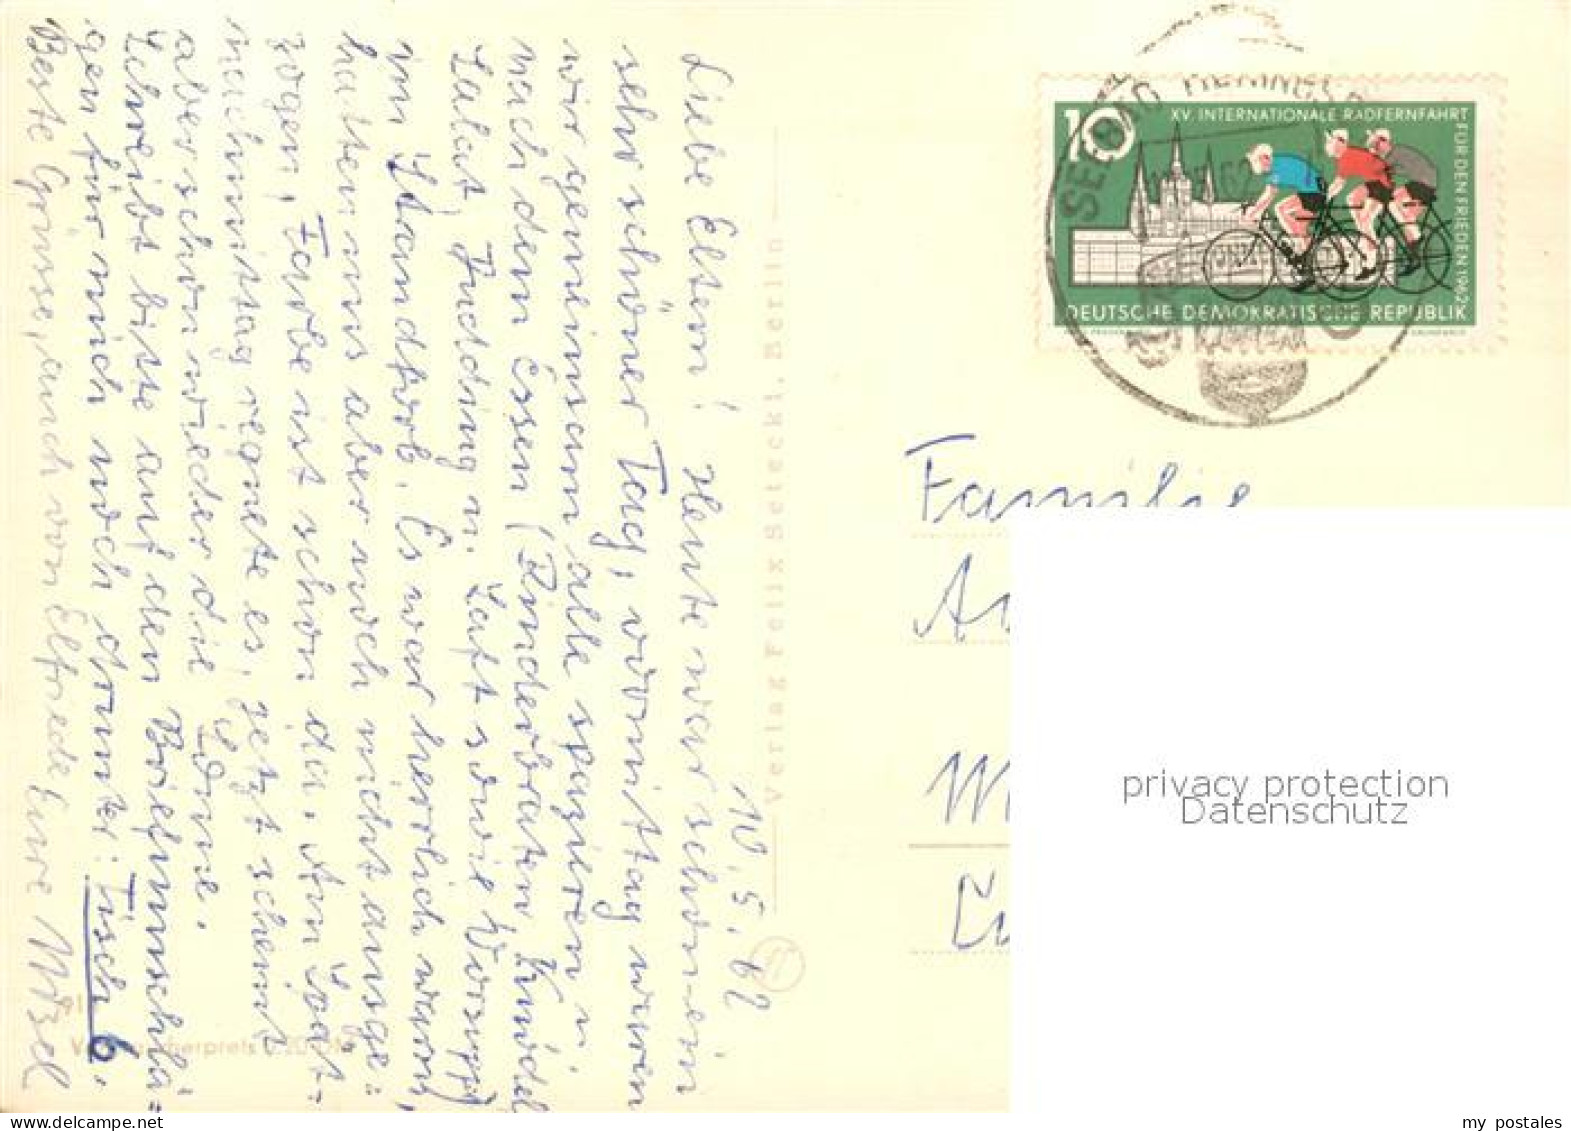 10.5.62
Liebe Eltern! Heute war schon ein
sehr schöner Tag, vormittag waren
wir gemeinsam alle spazieren u.
nach dem Essen, (Rinderbraten, Knödel
Salat, Pudding u. Saft sowie Vorsuppe)
im Strandkorb. Es war herrlich warm,
hatten uns aber noch nicht ausge=
zogen, Farbe ist schon da. Am Spät=
nachmittag regnete es, jetzt scheint
aber schon wieder die Sonne.
Schreibt bitte auf den Briefumschlä=
gen für mich noch drunter: Tisch 6.
Beste Grüsse, auch von Elfriede Eure
Verlag Felix Setecki, Berlin
10
XV. INTERNATIONALE RADFERNFAHRT
FÜR DEN FRIEDEN 1962
DEUTSCHE DEMOKRATISCHE REPUBLIK
SEEBAD HERINGSD
62
Familie
privacy protection
Datenschutz
my postales